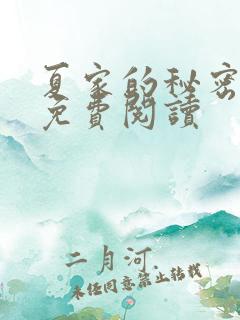 夏家的秘密
免費閱讀
二月河
未经同意禁止转载